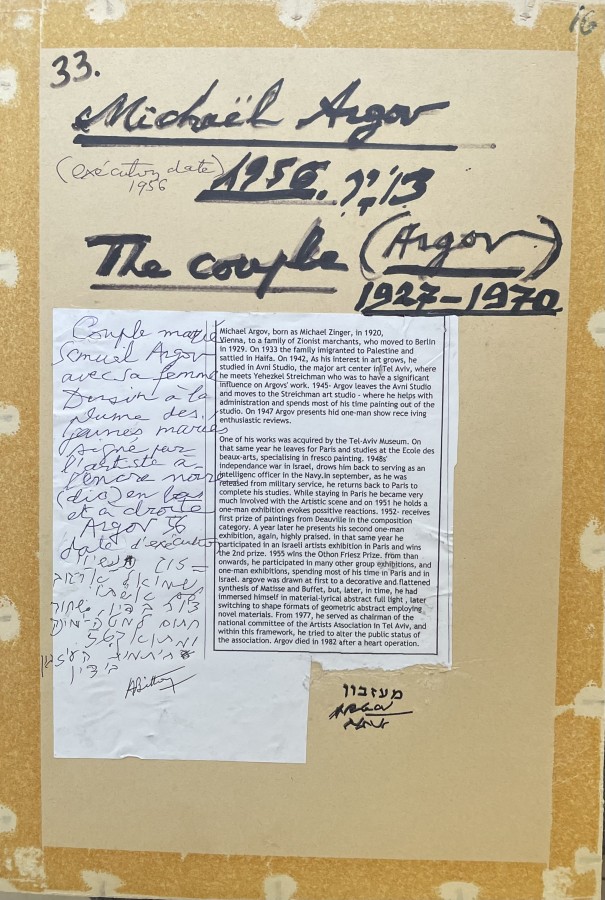 16
33.
Michaël Argov
(exécution date)
1956
1956. ציור
The couple (Argov)
1927-1970
Couple marié
Samuel Argov
avec sa femme
Dessin à la
plume des
jeunes mariés
signé par
l'artiste à
l'encre noire
(dio) en bas
et à droite
Argov 56
date d'exécution
Michael Argov, born as Michael Zinger, in 1920,
Vienna, to a family of Zionist marchants, who moved to Berlin
in 1929. On 1933 the family imigranted to Palestine and
sattled in Haifa. On 1942, As his interest in art grows, he
studied in Avni Studio, the major art center in Tel Aviv, where
he meets Yehezkel Streichman who was to have a significant
influence on Argovs' work. 1945- Argov leaves the Avni Studio
and moves to the Streichman art studio - where he helps with
administration and spends most of his time painting out of the
studio. On 1947 Argov presents hid one-man show rece iving
enthusiastic reviews.
One of his works was acquired by the Tel-Aviv Museum. On
that same year he leaves for Paris and studies at the Ecole des
beaux-arts, specialising in fresco painting. 1948s'
independance war in Israel, drows him back to serving as an
intelligenc officer in the Navy.in september, as he was
released from military service, he returns back to Paris to
complete his studies. While staying in Paris he became very
much involved with the Artistic scene and on 1951 he holds a
one-man exhibition evokes possitive reactions. 1952- receives
first prize of paintings from Deauville in the composition
category. A year later he presents his second one-man
exhibition, again, highly praised. in that same year he
participated in an Israeli artists exhibition in Paris and wins
the 2nd prize. 1955 wins the Othon Friesz Prize. from than
onwards, he participated in many other group exhibitions, and
one-man exhibitions, spending most of his time in Paris and in
Israel. argove was drawn at first to a decorative and flattened
synthesis of Matisse and Buffet, but, later, in time, he had
immersed himself in material-lyrical abstract full light , later
switching to shape formats of geometric abstract employing
novel materials. From 1977, he served as chairman of the
national committee of the Artists Association in Tel Aviv, and
within this framework, he tried to alter the public status of
the association. Argov died in 1982 after a heart operation.
מעזבון
ARGOV